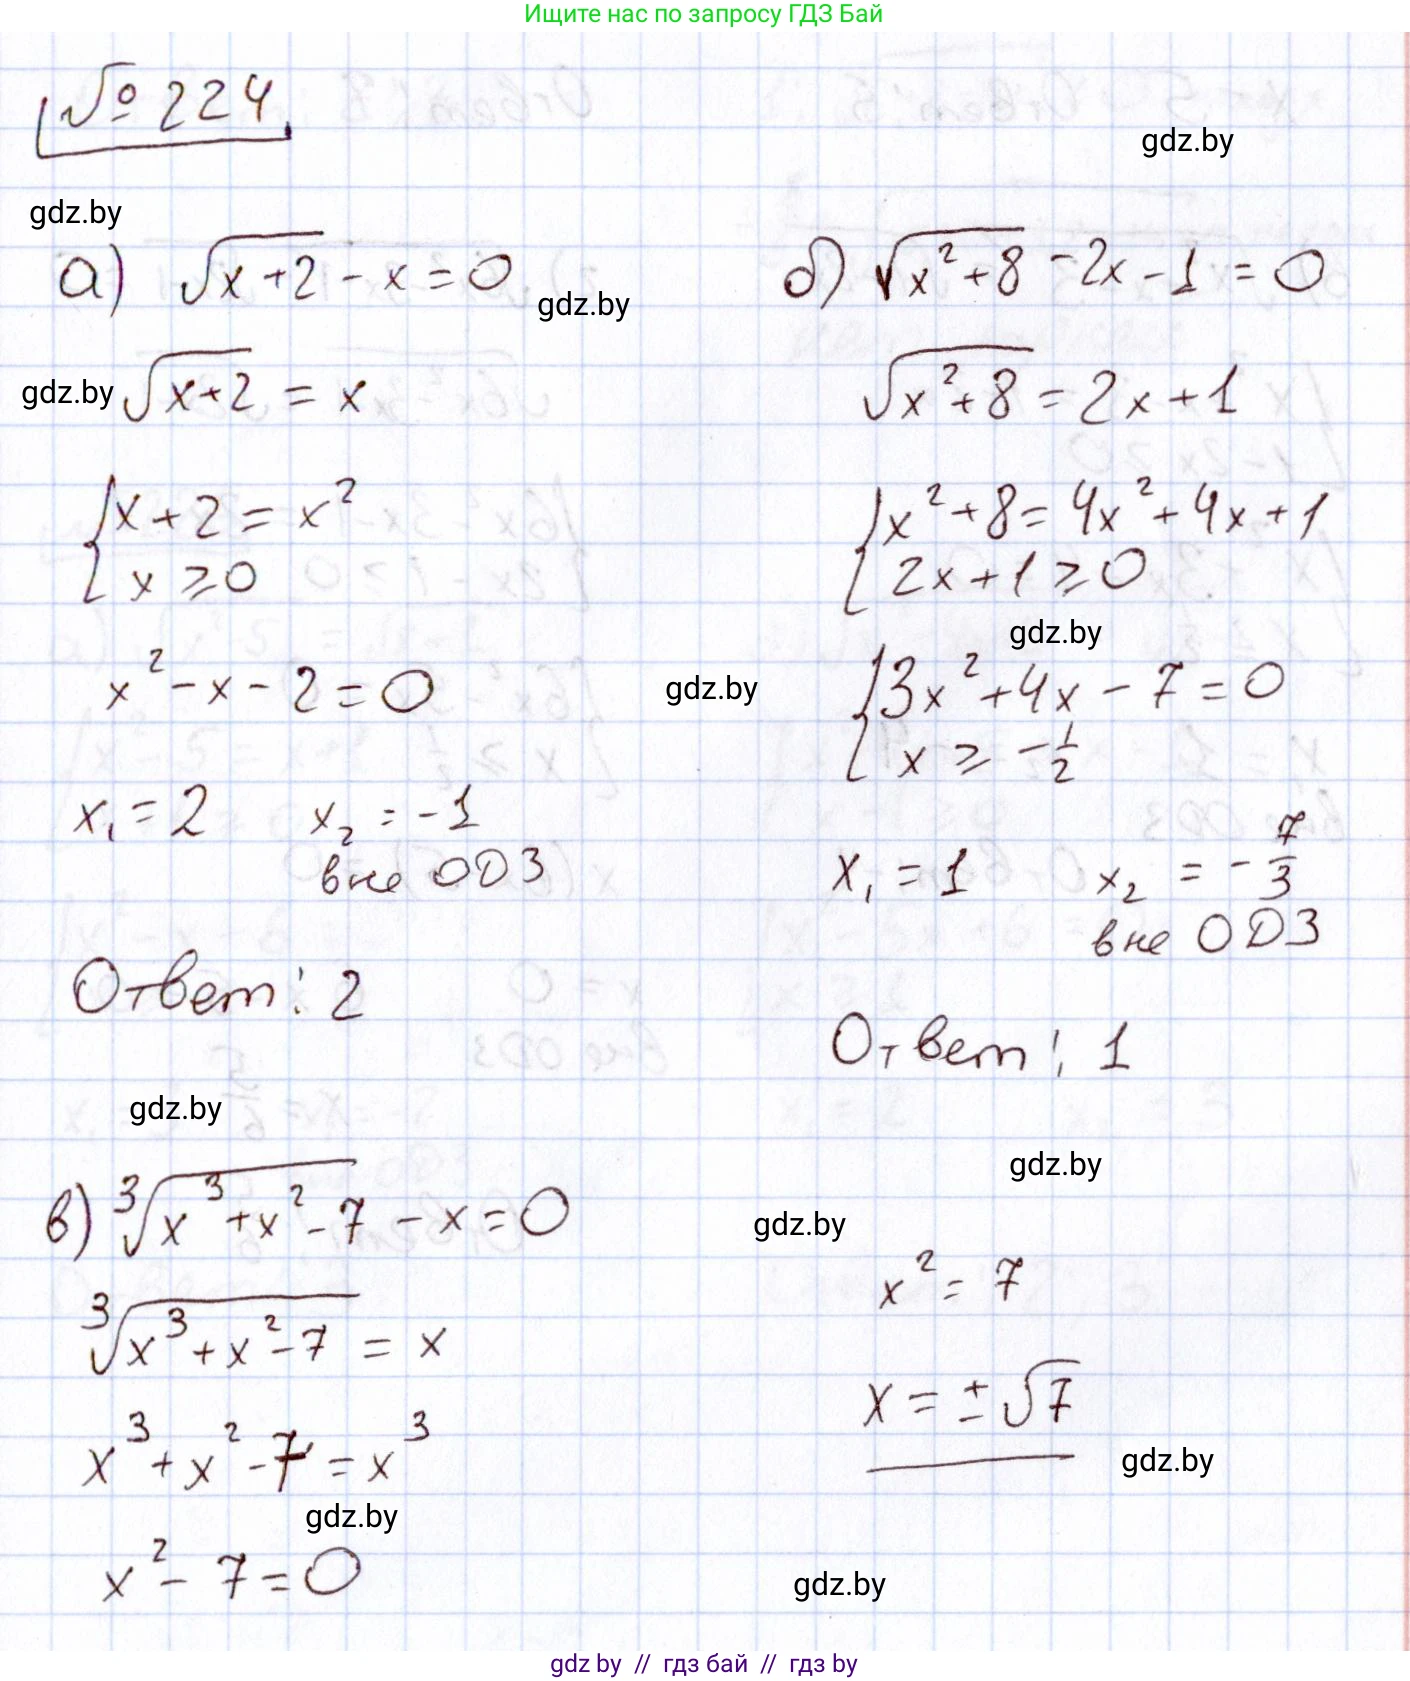 Ищите нас по запросу ГДЗ Бай
№ 224
gdz.by
gdz.by
а) √(x+2) - x = 0
gdz.by
gdz.by √(x+2) = x
{ x + 2 = x²
x ≥ 0
x² - x - 2 = 0
x₁ = 2 x₂ = -1
вне ОДЗ
Ответ: 2
б) √(x²+8) - 2x - 1 = 0
√(x²+8) = 2x + 1
{ x² + 8 = 4x² + 4x + 1
2x + 1 ≥ 0
gdz.by
gdz.by
{ 3x² + 4x - 7 = 0
x ≥ -1/2
x₁ = 1 x₂ = -7/3
вне ОДЗ
Ответ: 1
gdz.by
gdz.by
в) ∛(x³+x²-7) - x = 0
gdz.by
∛(x³+x²-7) = x
x³ + x² - 7 = x³
gdz.by
x² - 7 = 0
x² = 7
x = ±√7
gdz.by
gdz.by
gdz by // гдз бай // гдз by